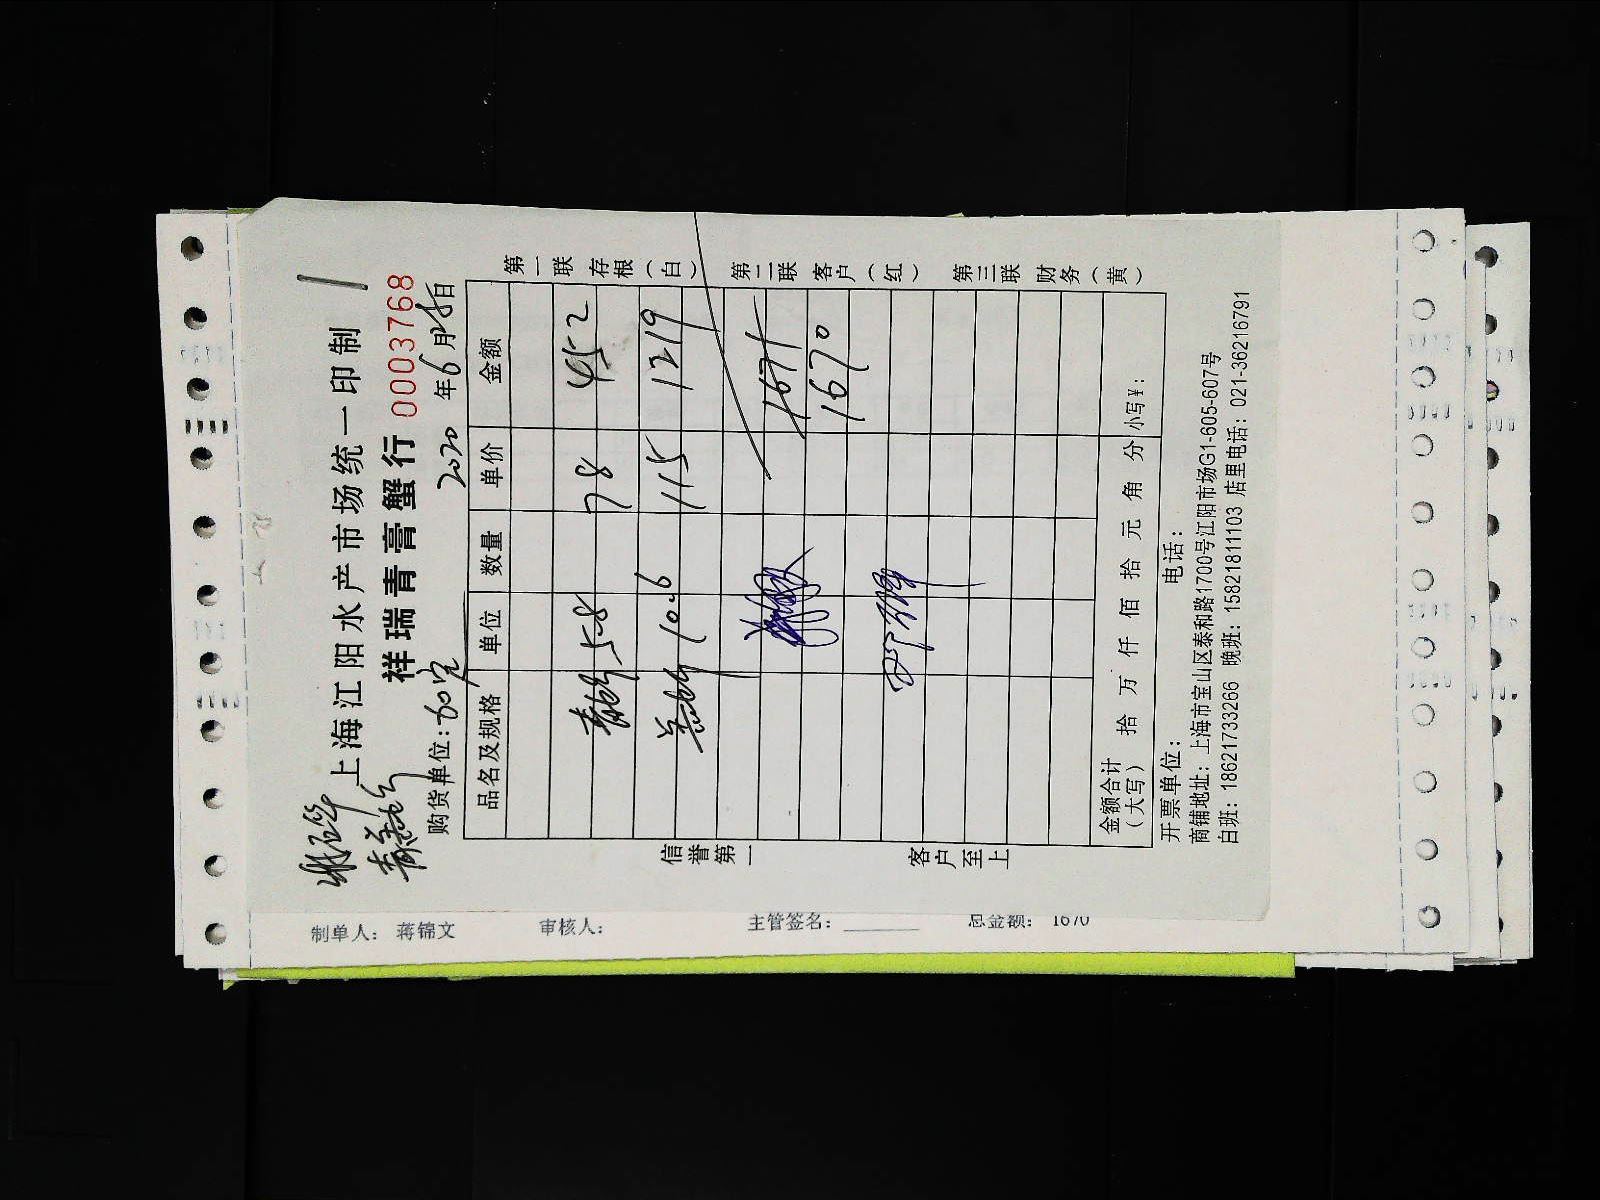 上海江阳水产市场统一印制
祥瑞青膏蟹行 0003768
购货单位: 2020 年 6 月 日
品名及规格 单位 数量 单价 金额
5.8 78 452
10.6 115 1219
1671
1670
金额合计 拾 万 仟 佰 拾 元 角 分 小写¥:
(大写)
开票单位: 电话:
商铺地址: 上海市宝山区泰和路1700号江阳市场G1-605-607号
白班: 18621733266 晚班: 15821811103 店里电话: 021-36216791
第一联 存根(白) 第二联 客户(红) 第三联 财务(黄)
信誉第一 客户至上
制单人: 蒋锦文 审核人: 主管签名: 总金额: 1670